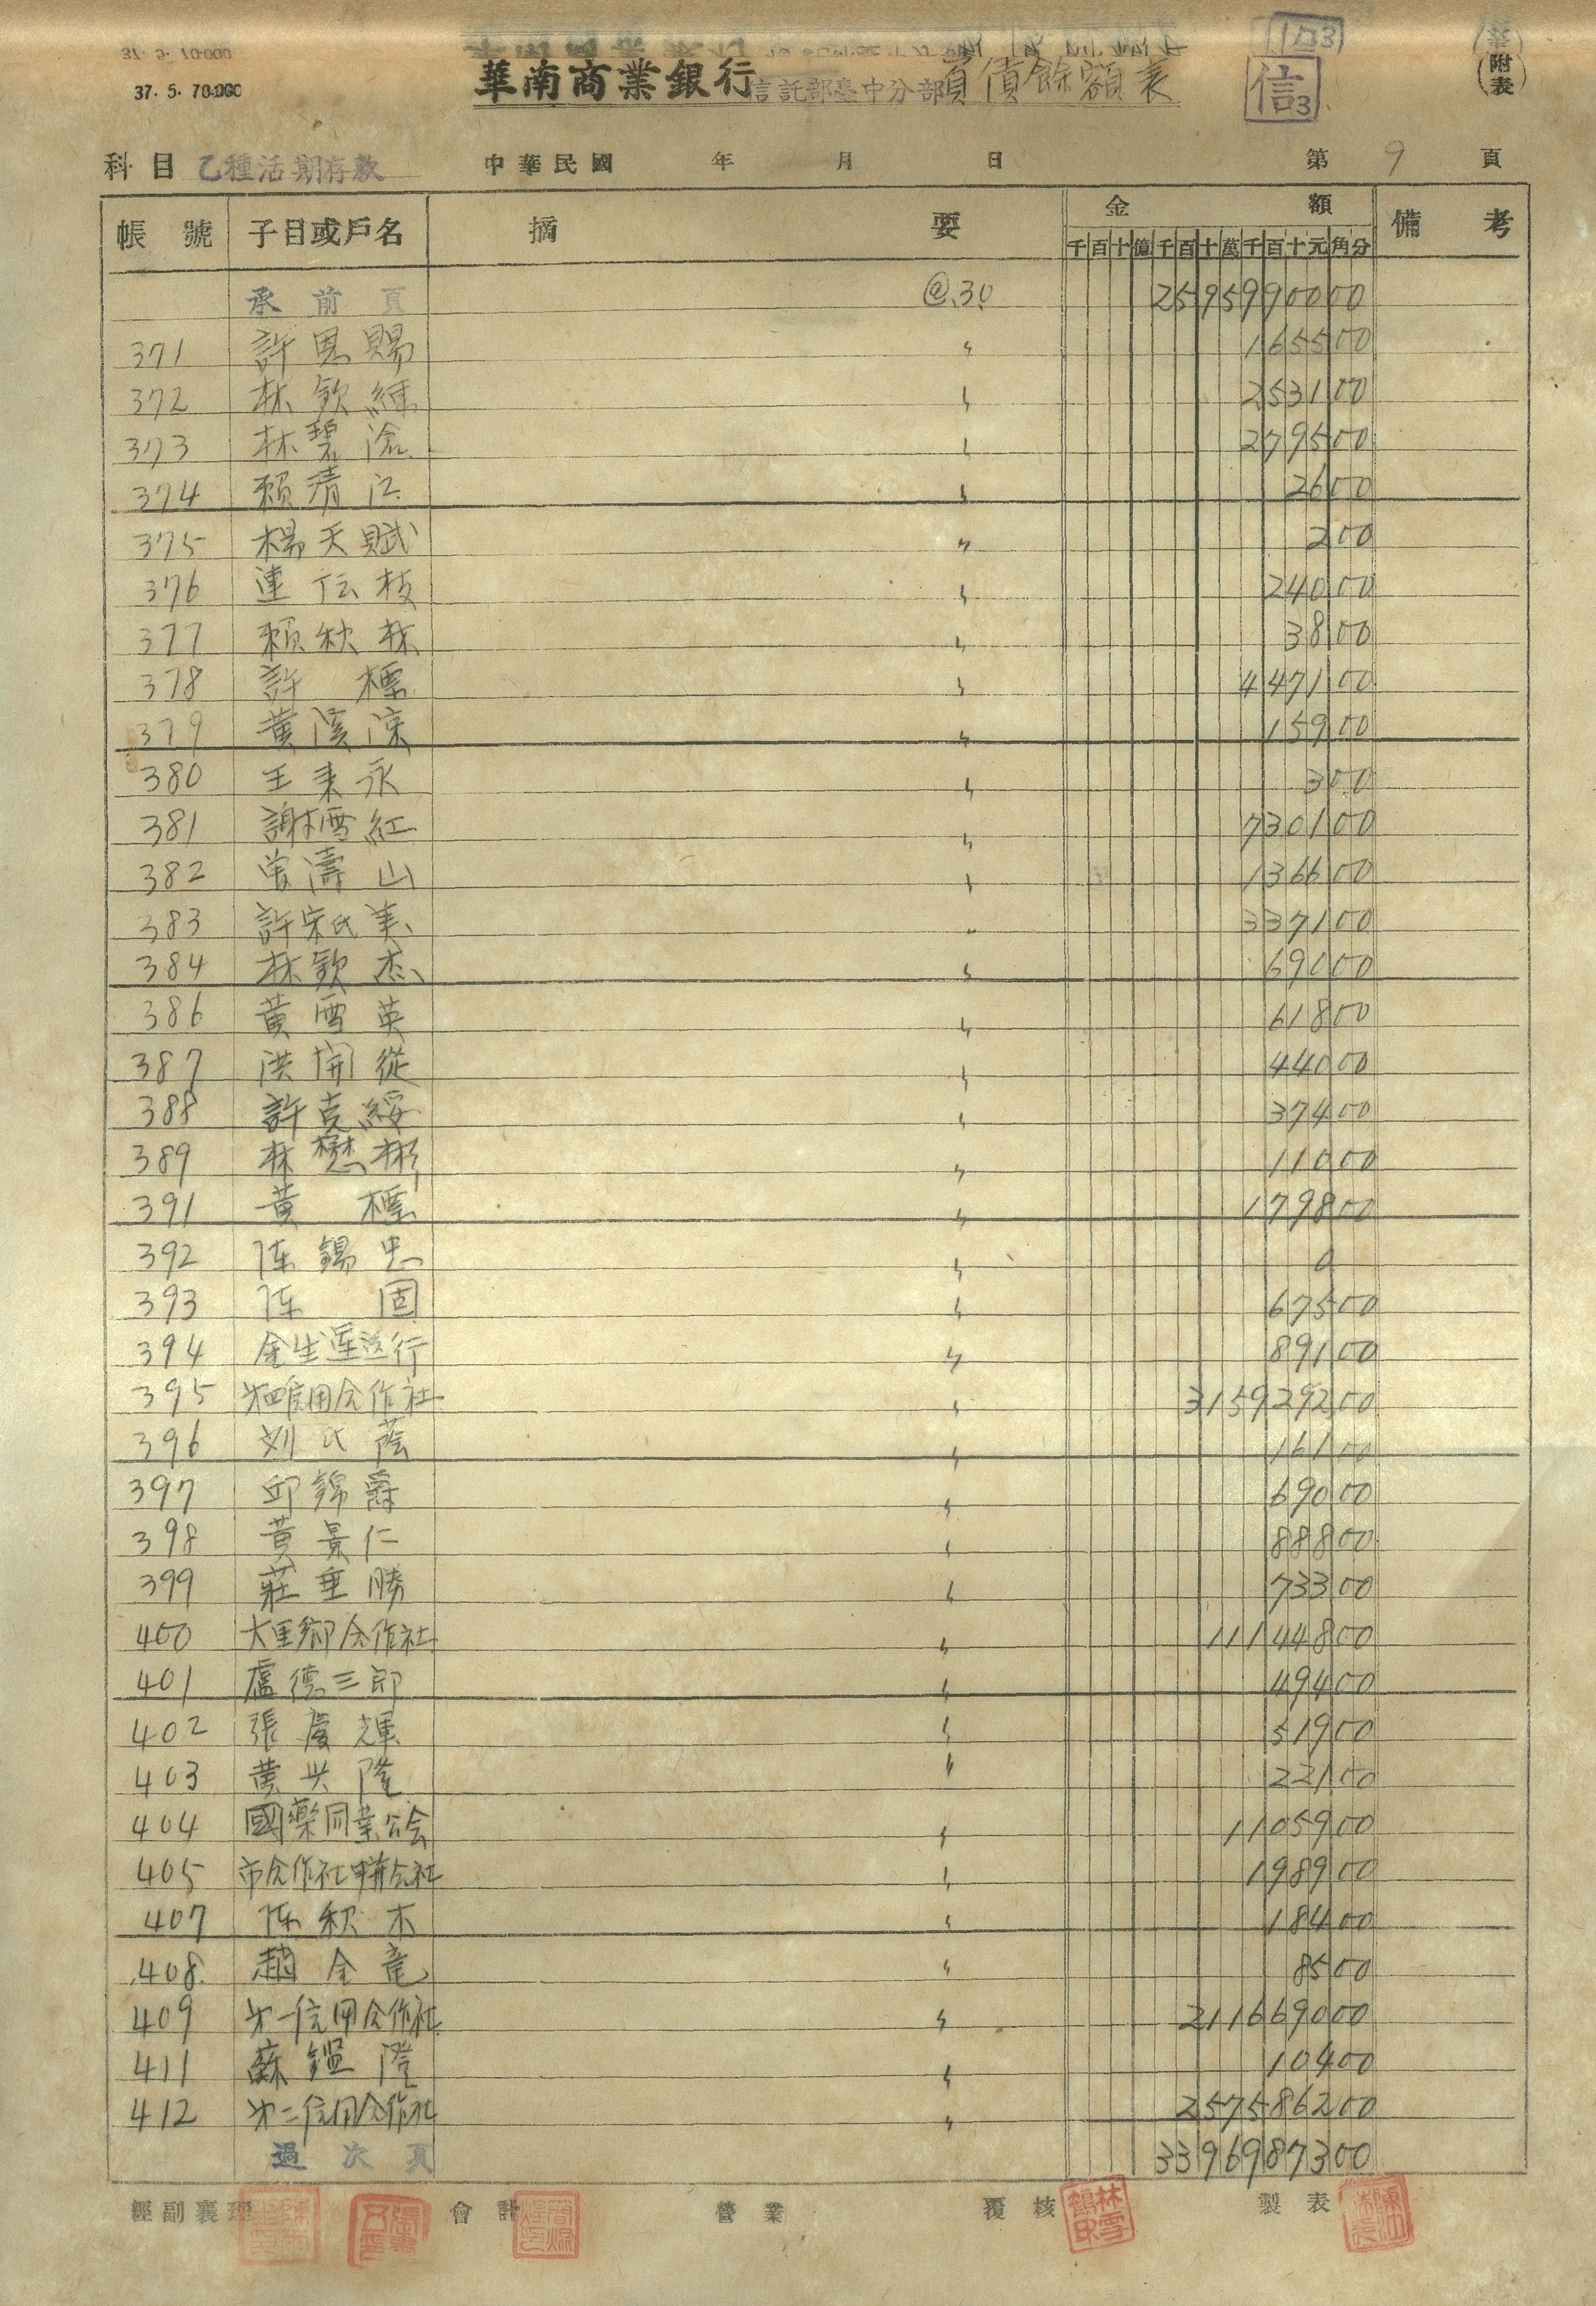 37. 5. 70.000
華南商業銀行信託部臺中分部負債餘額表
信3
(附表)
科目 乙種活期存款 中華民國 年 月 日 第 9 頁
帳號 子目或戶名 摘要 金額 備考
千百十億千百十萬千百十元角分
承前頁 @.30 25959900 00
371 許恩賜 〃 1655 00
372 林欽 〃 2531 00
373 林碧滄 〃 2795 00
374 賴清江 〃 26 00
375 楊天賦 〃 2 00
376 連伝枝 〃 240 00
377 賴秋林 〃 38 00
378 許標 〃 4471 00
379 黃溪深 〃 159 00
380 王来永 〃 3 00
381 謝雪紅 〃 7301 00
382 曾濤山 〃 1366 00
383 許宋氏美 〃 3371 00
384 林欽杰 〃 690 00
386 黃雪英 〃 618 00
387 洪開從 〃 440 00
388 許克綏 〃 374 00
389 林懋彬 〃 110 00
391 黃標 〃 1798 00
392 陈錫忠 〃 0
393 陈固 〃 675 00
394 金生運送行 〃 891 00
395 㐧四信用合作社 〃 3159292 00
396 刘氏蔭 〃 161 00
397 邱錦爵 〃 690 00
398 黃景仁 〃 888 00
399 莊垂勝 〃 733 00
400 大里鄉合作社 〃 111448 00
401 盧德三郎 〃 494 00
402 張慶輝 〃 519 00
403 黃兴隆 〃 221 00
404 國藥同業公会 〃 11059 00
405 市合作社 〃 1989 00
407 陈秋木 〃 184 00
408 趙全竜 〃 85 00
409 㐧一信用合作社 〃 2116690 00
411 蘇鑑澄 〃 104 00
412 㐧二信用合作社 〃 2575862 00
過次頁 33969873 00
經副襄理 會計 營業 覆核 製表